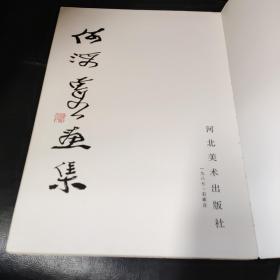 何海霞畫集
河北美术出版社
一九八七·石家庄